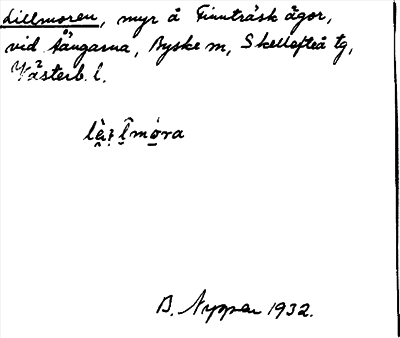 Lillmoren, myr å Finnträsk ägor,
vid Åängarna, Byske m, Skellefteå tg,
Västerb. l.
B. Nyman 1932.